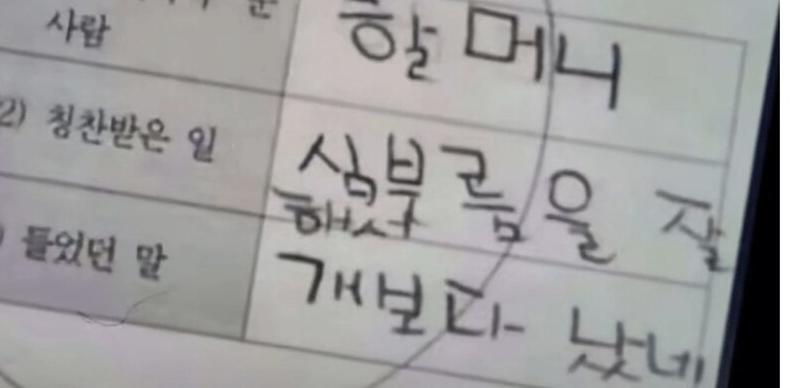 사람
할머니
2) 칭찬받은 일
심부름을 잘
했
) 들었던 말
개보다 났네